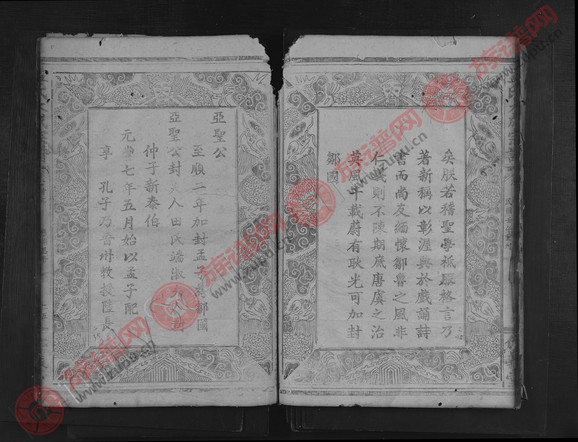 矣朕若稽聖學祗服格言乃
著新稱以彰渥典於戲誦詩
書而尚友緬懷鄒魯之風非
仁義則不陳期底唐虞之治
英風千載蔚有耿光可加封
鄒國
亞聖公
至順二年加封孟子為鄒國
亞聖公封夫人田氏
仲子新泰伯
元豐七年五月始以孟子配
享 孔子乃晉州教授陸長